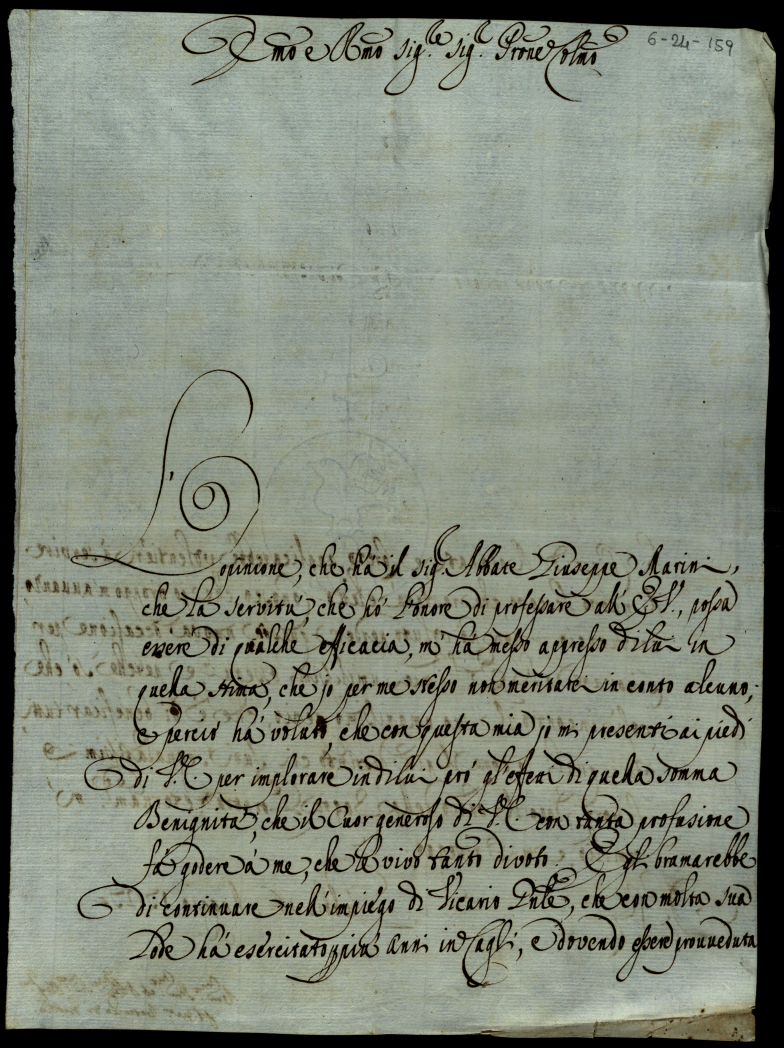 Emo e Rmo Sig.re Sig.r Prone Colmo
6-24-159
L'opinione, che hà il Sig.r Abbate Giuseppe Marini,
che la servitù, che hò l'onore di professare all'E.V., possa
essere di qualche efficacia, m'ha messo appresso di lui in
quella stima, che jo per me stesso non meritate in conto alcuno,
e perciò hà voluto, che con questa mia jo mi presenti ai piedi
di V.E. per implorare in di lui prò gl'effetti di quella somma
Benignità, che il Cuor generoso di V.E. con tanta profusione
fà godere à me, che le vivo tanto divoto. Egli bramarebbe
di continuare nell'impiego di Vicario Gnle, che con molta sua
Lode hà esercitato più anni in Cagli, e dovendo essere provveduta